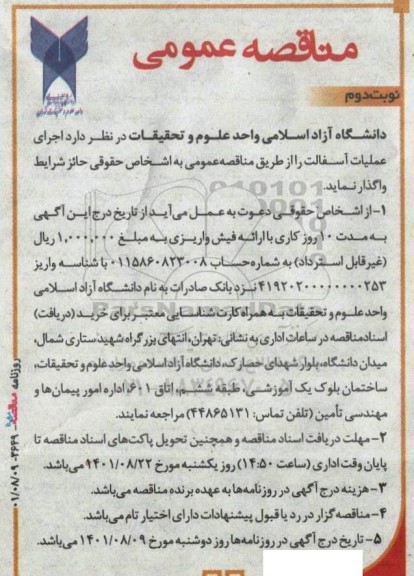 مناقصه عمومی
نوبت دوم
دانشگاه آزاد اسلامی واحد علوم و تحقیقات در نظر دارد اجرای
عملیات آسفالت را از طریق مناقصه عمومی به اشخاص حقوقی حائز شرایط
واگذار نماید.
۱- از اشخاص حقوقی دعوت به عمل می آید از تاریخ درج این آگهی
به مدت ۱۰ روز کاری با ارائه فیش واریزی به مبلغ ۱,۰۰۰,۰۰۰ ریال
(غیر قابل استرداد) به شماره حساب ۰۱۱۵۸۶۰۸۲۳۰۰۸ با شناسه واریز
۴۱۹۲۰۲۰۰۰۰۰۰۰۰۲۵۳ نزد بانک صادرات به نام دانشگاه آزاد اسلامی
واحد علوم و تحقیقات به همراه کارت شناسایی معتبر برای خرید (دریافت)
اسناد مناقصه در ساعات اداری به نشانی: تهران، انتهای بزرگراه شهید ستاری شمال،
میدان دانشگاه، بلوار شهدای حصارک، دانشگاه آزاد اسلامی واحد علوم و تحقیقات،
ساختمان بلوک یک آموزشی، طبقه ششم، اتاق ۶۰۱، اداره امور پیمان ها و
مهندسی تأمین (تلفن تماس: ۴۴۸۶۵۱۳۱) مراجعه نمایند.
۲- مهلت دریافت اسناد مناقصه و همچنین تحویل پاکت های اسناد مناقصه تا
پایان وقت اداری (ساعت ۱۴:۵۰) روز یکشنبه مورخ ۹۴۰۱/۰۸/۲۲ می باشد.
۳- هزینه درج آگهی در روزنامه ها به عهده برنده مناقصه می باشد.
۴- مناقصه گزار در رد یا قبول پیشنهادات دارای اختیار تام می باشد.
۵- تاریخ درج آگهی در روزنامه ها روز دوشنبه مورخ ۱۴۰۱/۰۸/۰۹ می باشد.
روزنامه مناقصه ۳۶۴۹- ۰۱/۰۸/۰۹